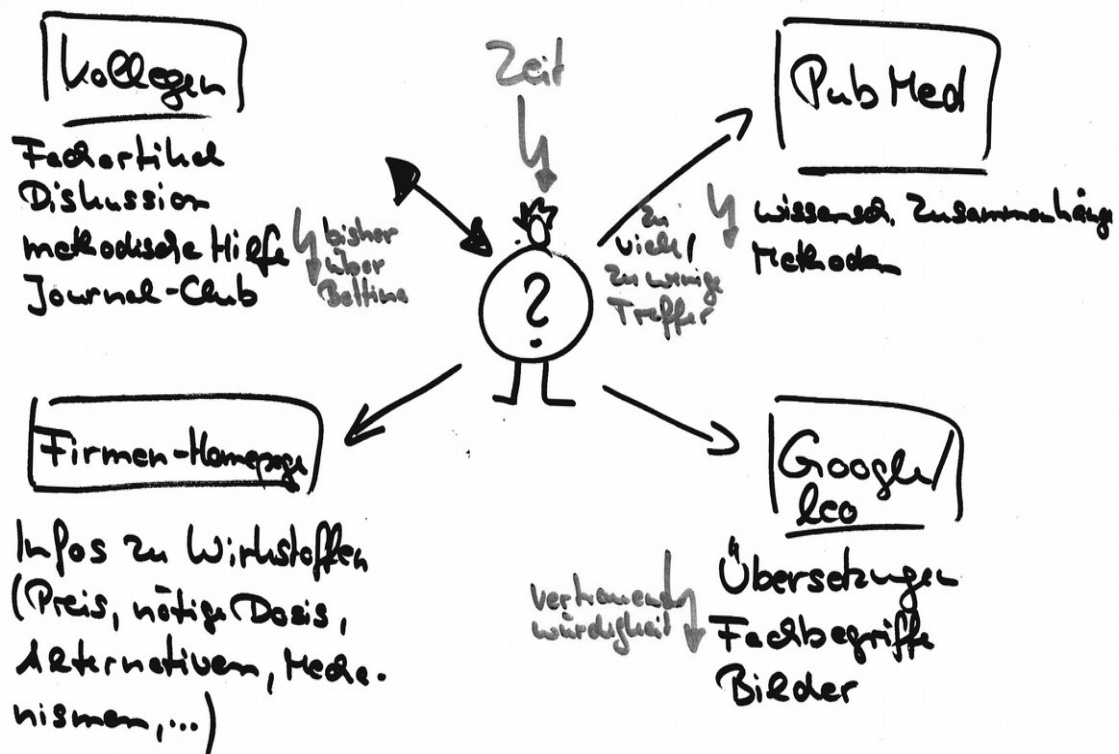 Kollegen
Fachartikel
Diskussion
methodische Hilfe
Journal-Club
bisher
über
Bettina
Zeit
?
PubMed
zu
viele/
zu wenige
Treffer
wissensch. Zusammenhänge
Methoden
Firmen-Homepage
Infos zu Wirkstoffen
(Preis, nötige Dosis,
Alternativen, Mecha-
nismen,...)
Google/
leo
Übersetzungen
Fachbegriffe
Bilder
vertrauens
würdigkeit